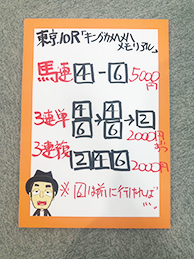 東京10R「キングカメハメハ
メモリアル」
馬連 4-6 5000円
3連単 4 6 → 4 6 → 2
2000円
3連複 2 4 6 2000円
※6は前に行ければ